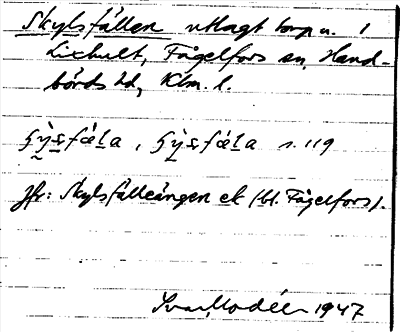 Skylsfällen utlagt torp u. 1
Lixhult, Fågelfors sn, Hand-
börds hd, Klm. l.
s. 119
Jfr: Skylsfälleängen ek (bl. Fågelfors).
Ivar Modéer 1947